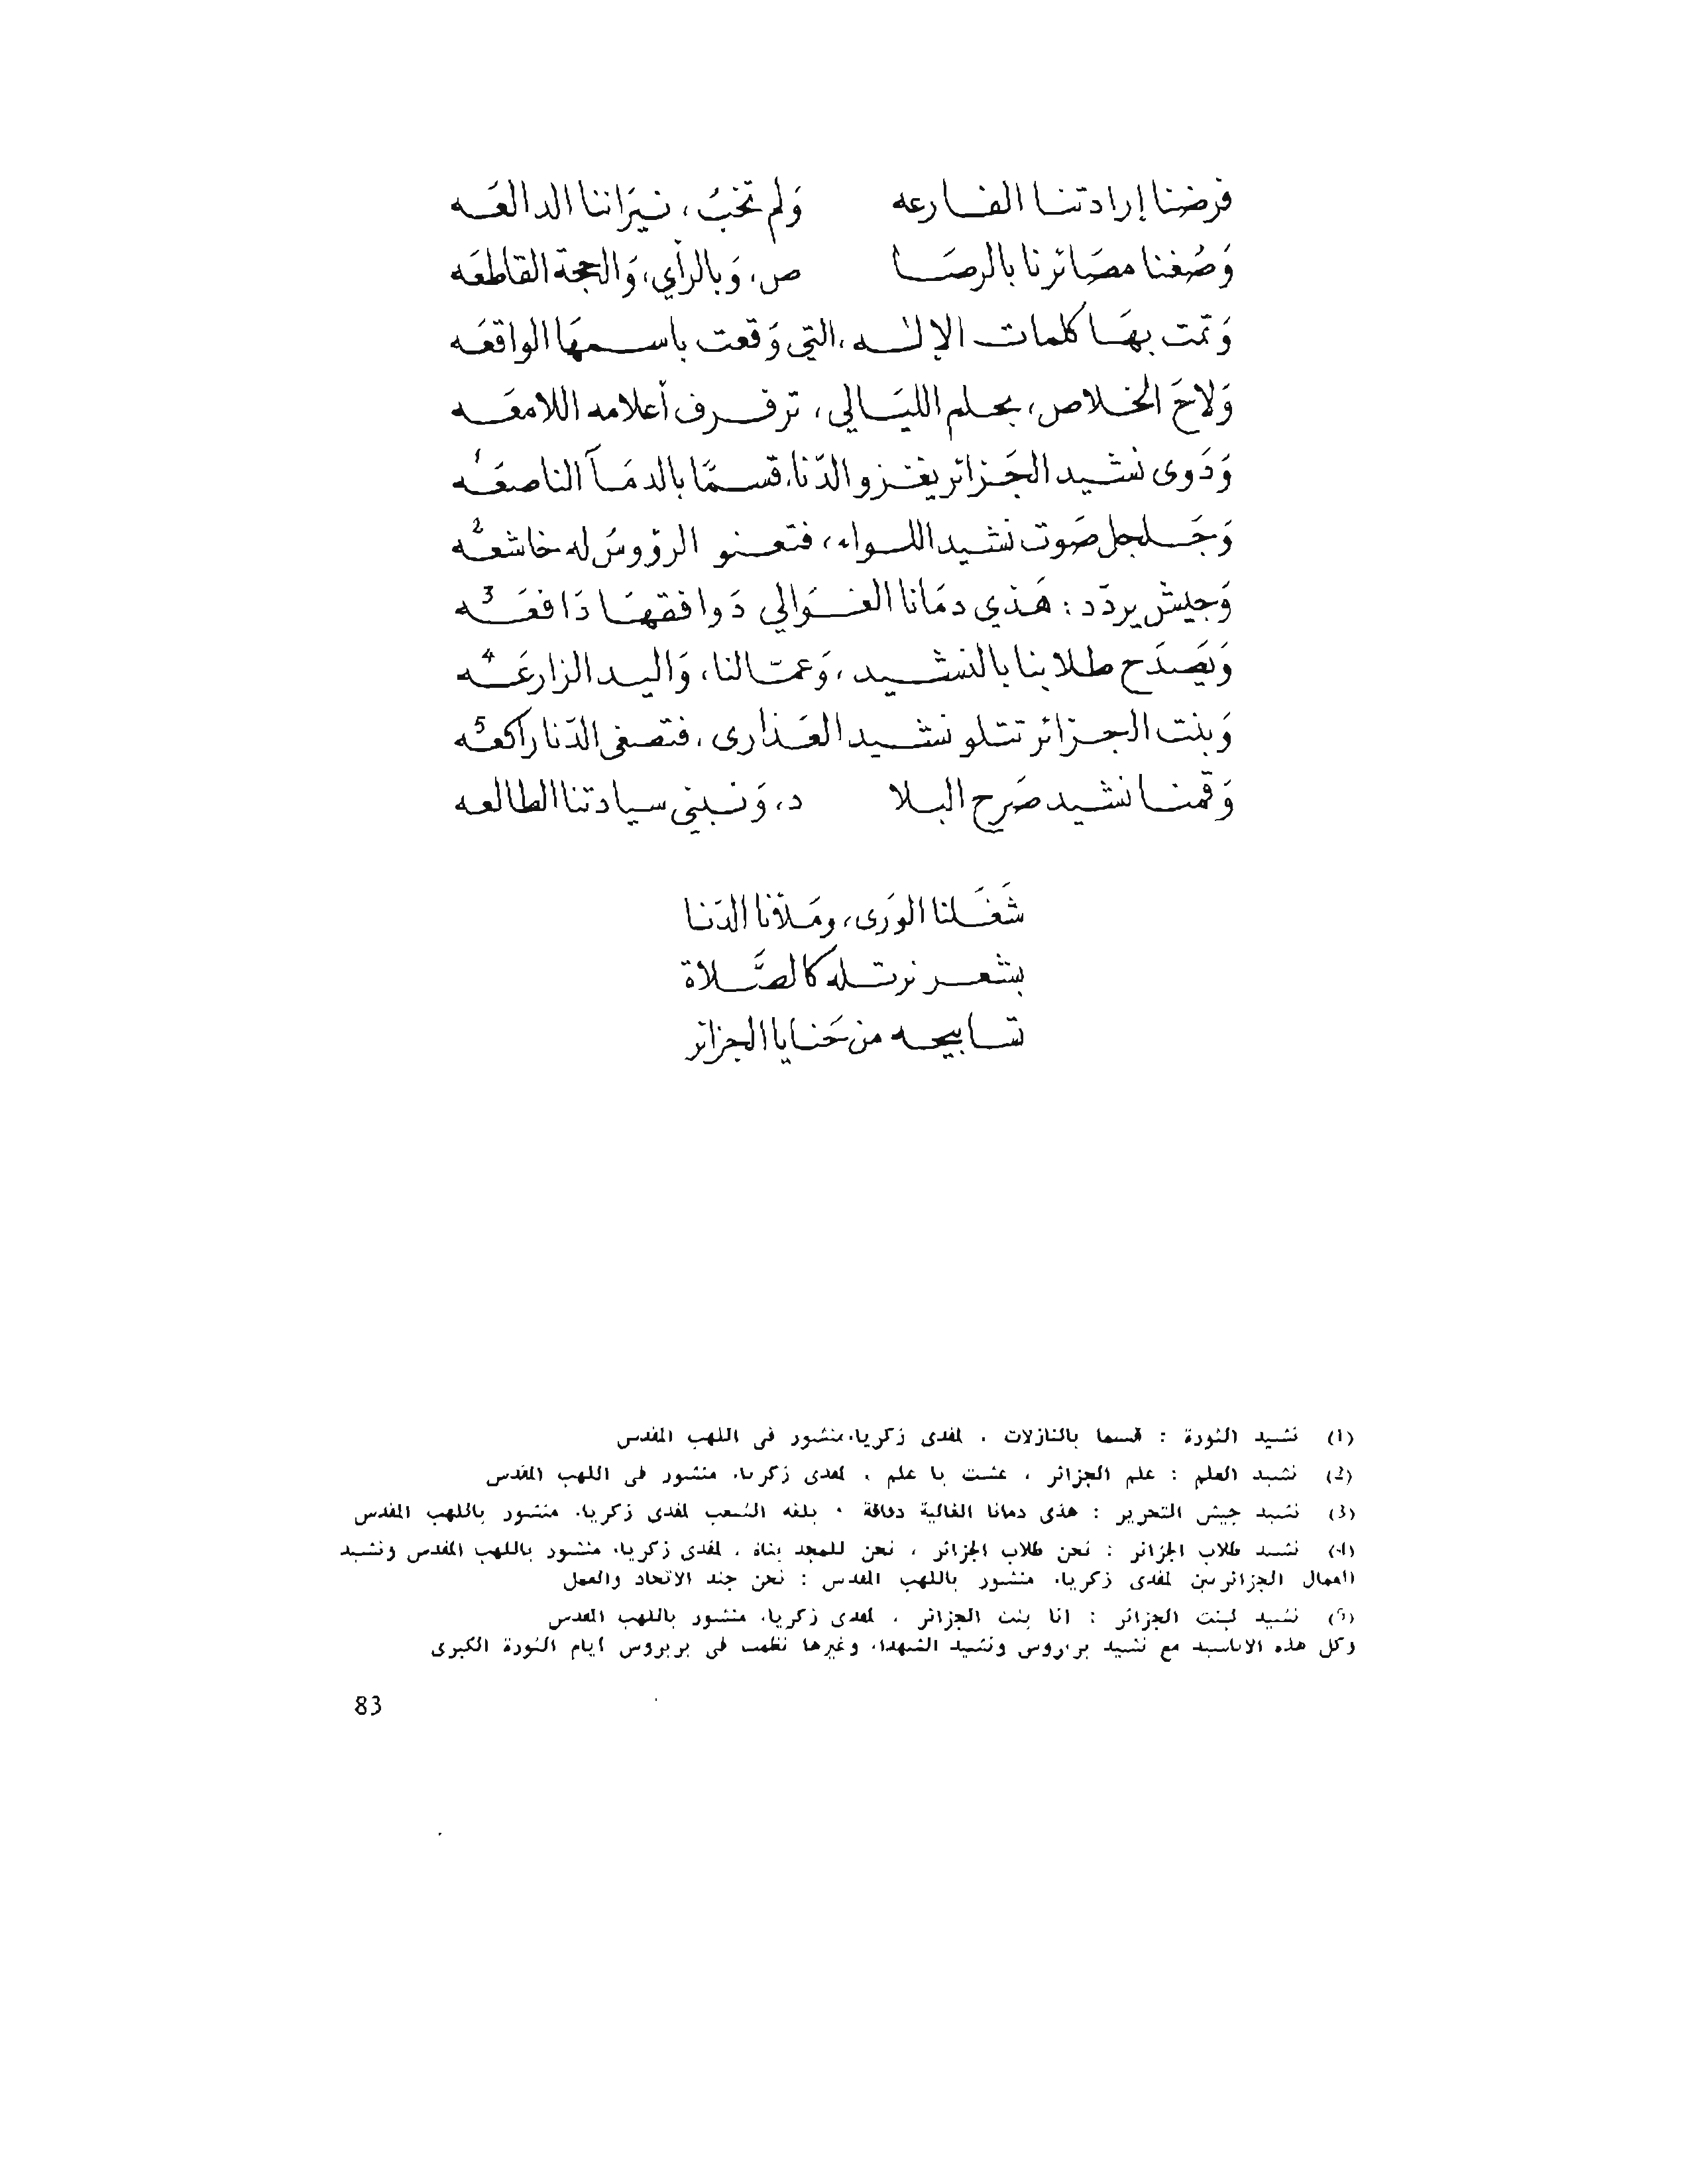 فرضنا إرادتنا الفارعه ولم تخبُ، نيرَاننا الدالعَه
وَصُغنا مصَائرنا بالرصَا ص، وَبالرأي، وَالحجة القاطعَه
وَتمّت بهَا كلمات الإلٰه، التي وَقعت باسمهَا الواقعَه
وَلاحَ الخلاص، بحلم الليَالي، ترفرف أعلامه اللامعَه
وَدَوى نشيد الجَزائر يغزو الدّنا، قسمًا بالدمَآ الناصعَه1
وَجَلجل صَوت نشيد اللواء، فتعنو الرؤوسُ له خاشعه2
وَجيش يردّد : هَذي دمَانا الغوَالي دَوافقهَا دَافعَه3
وَيَصدَح طلابنا بالنشيد، وَعمّالنا، وَاليد الزارعَه4
وَبنت الجزائر تتلو نشيد العَذارى، فتصغى الدّنا راكعه5
وَقمنا نشيد صَرح البلا د، وَنبني سيادتنا الطالعه
شَغَلنا الورَى، ومَلأنا الدّنا
بشعر نرتله كالصَّلاة
تسابيحه من حَنايا الجزائر
(1) نشيد الثورة : قسما بالنازلات . لمفدى زكرياء، منشور فى اللهب المقدس
(2) نشيد العلم : علم الجزائر ، عشت يا علم ، لمفدى زكرياء، منشور فى اللهب المقدس
(3) نشيد جيش التحرير : هذى دمانا الغالية دفاقة . بلغه الشعب لمفدى زكرياء، منشور باللهب المقدس
(4) نشيد طلاب الجزائر : نحن طلاب الجزائر ، نحن للمجد بناة ، لمفدى زكرياء، منشور باللهب المقدس ونشيد
العمال الجزائريين لمفدى زكرياء، منشور باللهب المقدس : نحن جند الاتحاد والعمل
(5) نشيد لبنت الجزائر : انا بنت الجزائر ، لمفدى زكرياء، منشور باللهب المقدس
وكل هذه الاناشيد مع نشيد بربروس ونشيد الشهداء، وغيرها نظمت فى بربروس ايام الثورة الكبرى
83